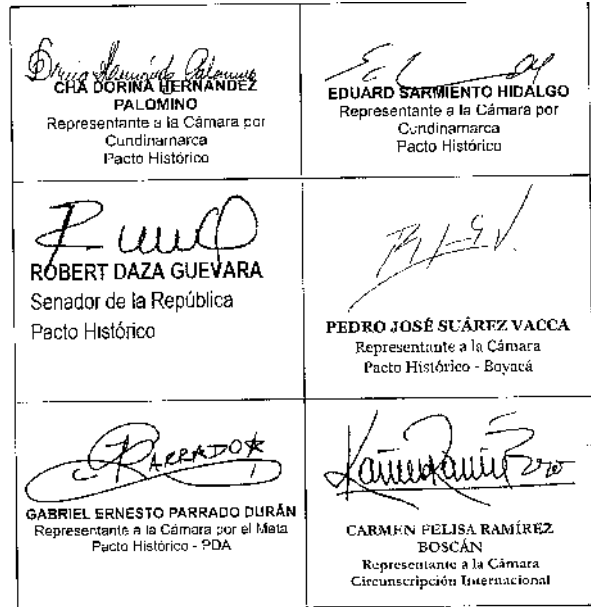 CHA DORINA HERNÁNDEZ
PALOMINO
Representante a la Cámara por
Cundinamarca
Pacto Histórico
EDUARD SARMIENTO HIDALGO
Representante a la Cámara por
Cundinamarca
Pacto Histórico
ROBERT DAZA GUEVARA
Senador de la República
Pacto Histórico
PEDRO JOSÉ SUÁREZ VACCA
Representante a la Cámara
Pacto Histórico - Boyacá
PARRADO
GABRIEL ERNESTO PARRADO DURÁN
Representante a la Cámara por el Meta
Pacto Histórico - PDA
CARMEN FELISA RAMÍREZ
BOSCÁN
Representante a la Cámara
Circunscripción Internacional